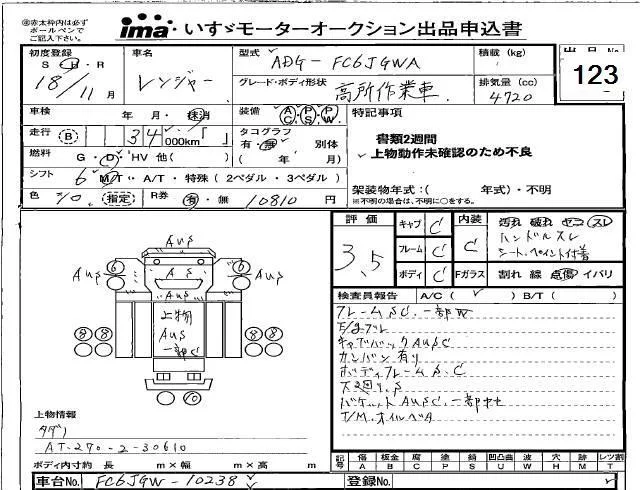 ㊟赤太枠内は必ずボールペンでご記入下さい。
ima いすゞモーターオークション出品申込書
初度登録 S・H・R 18/11月
車名 レンジャー
型式 ADG-FC6JGWA
グレード・ボディ形状 高所作業車
積載(kg)
排気量(cc) 4720
出品No.
123
車検 年・月・抹消
装備 AC PS PW
特記事項
書類2週間
上物動作未確認のため不良
走行 (B) 34 000km「 」
タコグラフ 有・無 別体 ( 年 月)
燃料 G・D・HV 他( )
シフト 6 M/T・A/T・特殊(2ペダル・3ペダル)
架装物年式:( 年式)・不明
※不明の場合は、不明に○をする。
色 (指定) R券 有・無 10810 円
評価 3.5
キャブ C
フレーム C
ボディ C
内装 C
Fガラス
汚れ 破れ ヤコ スレ
ハンドルスレ
シート、ペイント付着
割れ 線 点傷 イバリ
検査員報告 A/C( ✓ ) B/T( )
フレームSC、一部W
キャブバックAUSC
カンバン有り
ボディフレームS.C
バケットAUSC、一部中古
T/M.オイルベA
AUS
AUS
AUS
A S
A
6
6
上物
AUS
一部C
8 8
8 8
上物情報
タダノ
AT-270-2-30610
ボディ内寸約 長 m×幅 m×高 m
記号 傷A 板金B 腐C 塗P 錆S 凹凸曲U 波W 穴H 跡M レンズ割T
車台No. FC6JGW-10238
登録No.